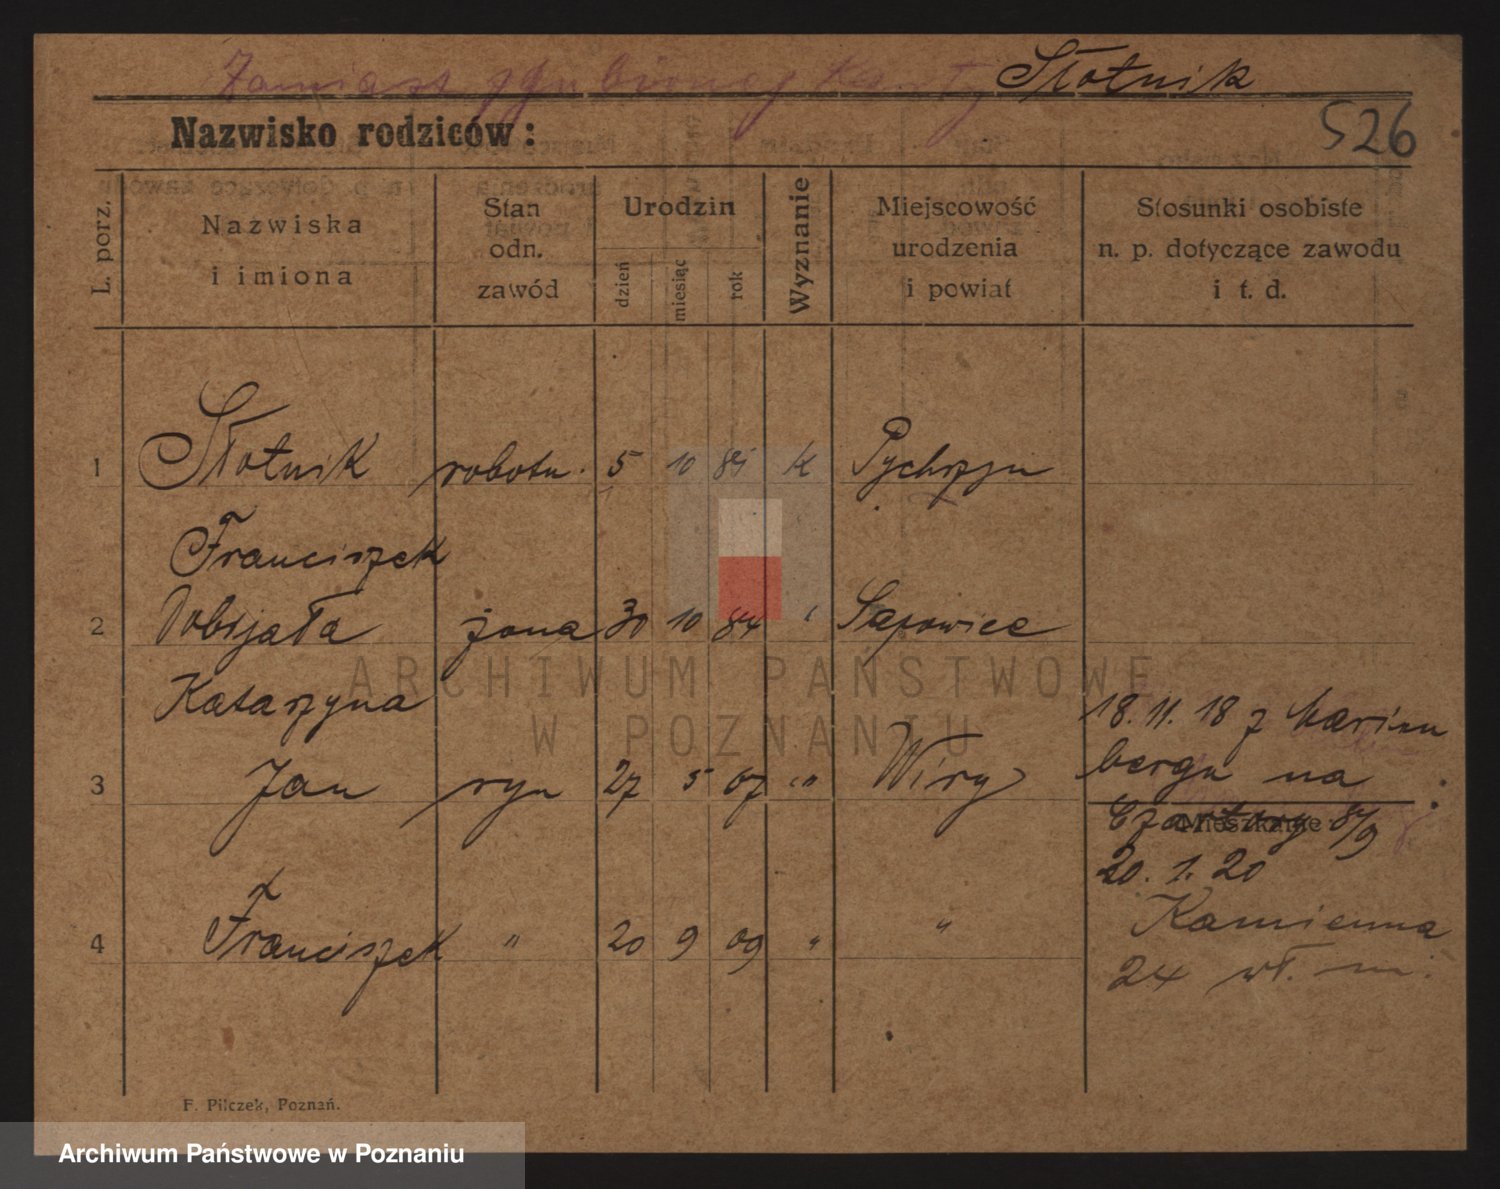 Zamiast zgubionej karty Słotnik
526
Nazwisko rodziców:
L. porz.
Nazwiska
i imiona
Stan
odn.
zawód
Urodzin
dzień
miesiąc
rok
Wyznanie
Miejscowość
urodzenia
i powiat
Stosunki osobiste
n. p. dotyczące zawodu
i t. d.
1 Słotnik robotn. 5 10 85 K
Franciszek
2 żona 30 10 84 " Sapowice
Katarzyna
18. 11. 18 z Marien
3 Jan syn 27 5 07 " Wiry
bergu na
Mieszkanie
8/9
20. 1. 20
4 Franciszek " 20 9 09 " "
Kamienna
24 wł. m.
F. Pilczek, Poznań.
ARCHIWUM PAŃSTWOWE
W POZNANIU
Archiwum Państwowe w Poznaniu